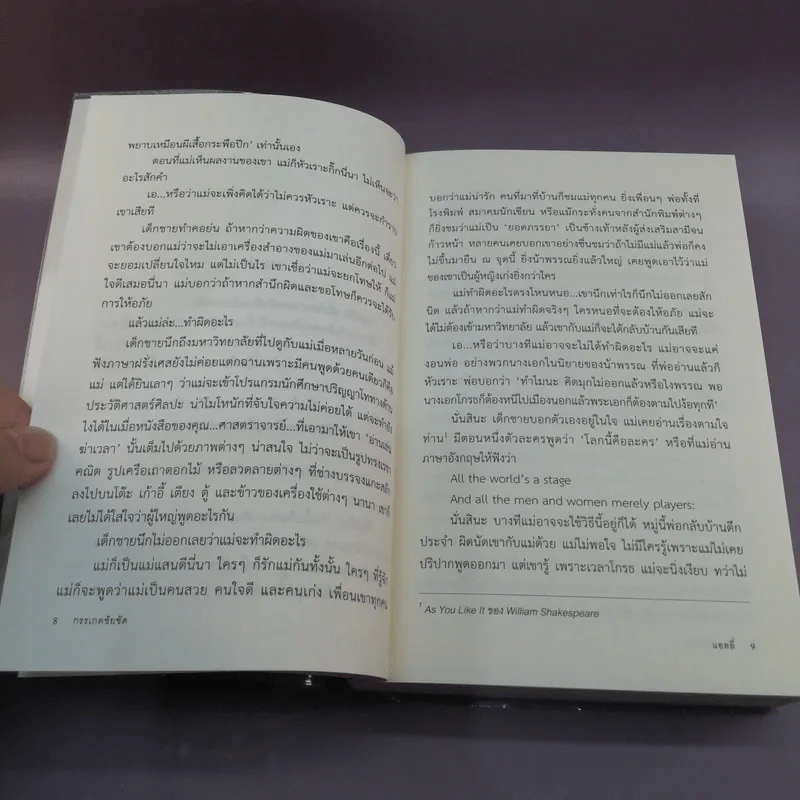 พยาบเหมือนผีเสื้อกระพือปีก' เท่านั้นเอง
ตอนที่แม่เห็นผลงานของเขา แม่ก็หัวเราะกิ๊กนี่นา ไม่เห็นจะว่า
อะไรสักคำ
เอ...หรือว่าแม่จะเพิ่งคิดได้ว่าไม่ควรหัวเราะ แต่ควรจะกำราบ
เขาเสียที
เด็กชายทำคอย่น ถ้าหากว่าความผิดของเขาคือเรื่องนี้ เดี๋ยว
เขาต้องบอกแม่ว่าจะไม่เอาเครื่องสำอางของแม่มาเล่นอีกต่อไป แม่
จะยอมเปลี่ยนใจไหม แต่ไม่เป็นไร เขาเชื่อว่าแม่จะยกโทษให้ ก็แม่
ใจดีเสมอนี่นา แม่บอกว่าถ้าหากสำนึกผิดและขอโทษก็ควรจะได้รับ
การให้อภัย
แล้วแม่ล่ะ...ทำผิดอะไร
เด็กชายนึกถึงมหาวิทยาลัยที่ไปดูกับแม่เมื่อหลายวันก่อน แม้
ฟังภาษาฝรั่งเศสยังไม่ค่อยแตกฉานเพราะมีคนพูดด้วยคนเดียวก็คือ
แม่ แต่ได้ยินเลาๆ ว่าแม่จะเข้าโปรแกรมนักศึกษาปริญญาโททางด้าน
ประวัติศาสตร์ศิลปะ น่าโมโหนักที่จับใจความไม่ค่อยได้ แต่จะทำยัง
ไงได้ในเมื่อหนังสือของคุณ...ศาสตราจารย์...ที่เอามาให้เขา 'อ่านเล่น
ฆ่าเวลา' นั้นเต็มไปด้วยภาพต่างๆ น่าสนใจ ไม่ว่าจะเป็นรูปทรงเรขา
คณิต รูปเครือเถาดอกไม้ หรือลวดลายต่างๆ ที่ช่างบรรจงแกะสลัก
ลงไปบนโต๊ะ เก้าอี้ เตียง ตู้ และข้าวของเครื่องใช้ต่างๆ นานา เขาก็
เลยไม่ได้ใส่ใจว่าผู้ใหญ่พูดอะไรกัน
เด็กชายนึกไม่ออกเลยว่าแม่จะทำผิดอะไร
แม่ก็เป็นแม่แสนดีนี่นา ใครๆ ก็รักแม่กันทั้งนั้น ใครๆ ที่รู้จัก
แม่ก็จะพูดว่าแม่เป็นคนสวย คนใจดี และคนเก่ง เพื่อนเขาทุกคน
8 กรรเกดชัยชัด
บอกว่าแม่น่ารัก คนที่มาที่บ้านก็ชมแม่ทุกคน ยิ่งเพื่อนๆ พ่อทั้งที่
โรงพิมพ์ สมาคมนักเขียน หรือแม้กระทั่งคนจากสำนักพิมพ์ต่างๆ
ก็ยิ่งชมว่า เป็น 'ยอดภรรยา' เป็นช้างเท้าหลังผู้ส่งเสริมสามีจน
ก้าวหน้า หลายคนเคยบอกเขาอย่างชื่นชมว่าถ้าไม่มีแม่แล้วพ่อก็คง
ไม่ขึ้นมายืน ณ จุดนี้ ยิ่งน้าพรรณยิ่งแล้วใหญ่ เคยพูดเอาไว้ว่าแม่
ของเขาเป็นผู้หญิงเก่งยิ่งกว่าใคร
แม่ทำผิดอะไรตรงไหนหนอ...เขานึกเท่าไรก็นึกไม่ออกเลยสัก
นิด แล้วถ้าหากว่าแม่ทำผิดจริงๆ ใครหนอที่จะต้องให้อภัย แม่จะ
ได้ไม่ต้องเข้ามหาวิทยาลัย แล้วเขากับแม่ก็จะได้กลับบ้านกันเสียที
เอ...หรือว่าบางทีแม่อาจจะไม่ได้ทำผิดอะไร แม่อาจจะแค่
งอนพ่อ อย่างพวกนางเอกในนิยายของน้าพรรณ ที่พ่ออ่านแล้วก็
หัวเราะ พ่อบอกว่า 'ทำไมนะ คิดมุกไม่ออกแล้วหรือไงพรรณ พอ
นางเอกโกรธก็ต้องหนีไปเมืองนอกแล้วพระเอกก็ต้องตามไปง้อทุกที'
นั่นสินะ เด็กชายบอกตัวเองอยู่ในใจ แม่เคยอ่านเรื่องตามใจ
ท่าน¹ มีตอนหนึ่งตัวละครพูดว่า 'โลกนี้คือละคร' หรือที่แม่อ่าน
ภาษาอังกฤษให้ฟังว่า
All the world's a stage
And all the men and women merely players:
นั่นสินะ บางทีแม่อาจจะใช้วิธีนี้อยู่ก็ได้ หมู่นี้พ่อกลับบ้านดึก
ประจำ ผิดนัดเขากับแม่ด้วย แม่ไม่พอใจ ไม่มีใครรู้เพราะแม่ไม่เคย
ปริปากพูดออกมา แต่เขารู้ เพราะเวลาโกรธ แม่จะนิ่งเงียบ ทว่าไม่
¹ As You Like It ของ William Shakespeare
แอลลี่ 9